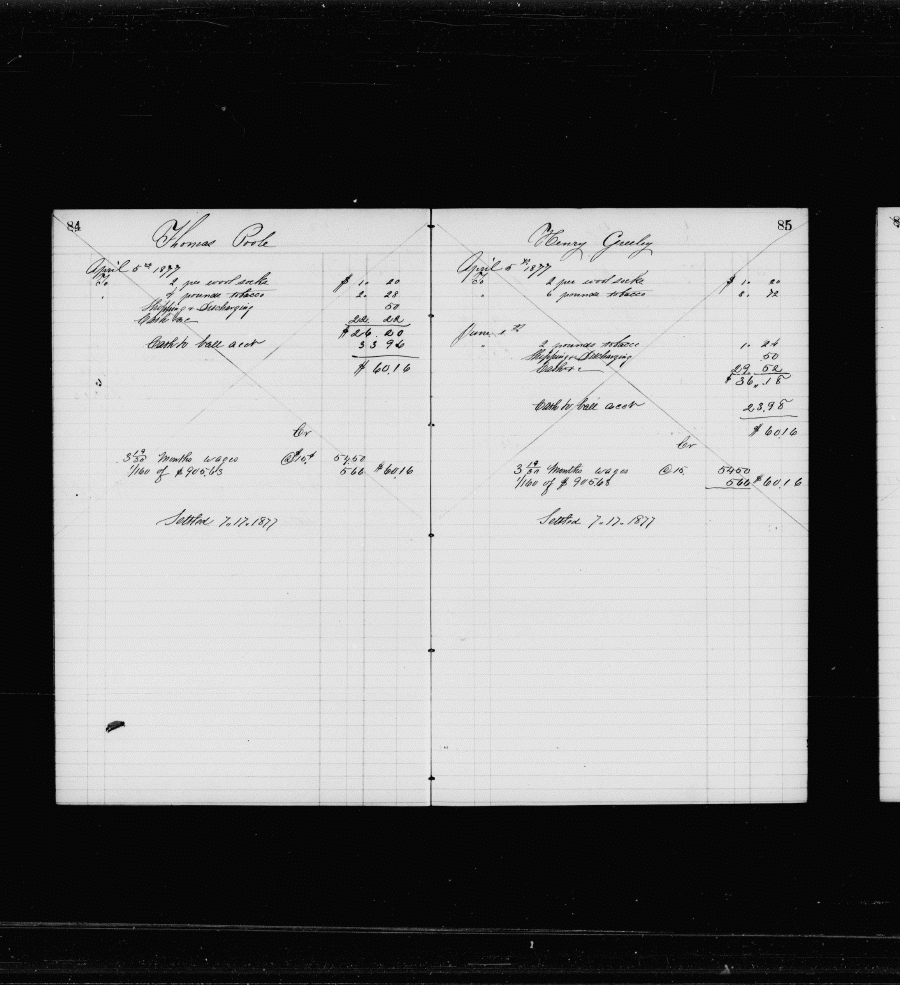 84
Thomas Poole
April 5th 1877
To 2 per wool socks $ 1. 20
" 4 pounds tobacco 2. 28
Shipping & Discharging 50
Cash &c 22. 22
$ 26. 20
Cash to ball acct 33 96
$ 60.16
Cr
3 19/30 Months wages @ $15. 54.50
1/160 of $ 905.63 566 $60.16
Settled 7.17.1877
85
Henry Greeley
April 5th 1877
To 2 per wool socks $ 1. 20
" 6 pounds tobacco 3. 72
June
" 2 pounds tobacco 1. 24
Shipping & Discharging .50
Cash &c 29. 52
$ 36. 18
Cash to ball acct 23.98
$ 60.16
Cr
3 19/30 Months wages @ 15 54.50
1/160 of $ 905.63 566 $ 60.16
Settled 7.17.1877